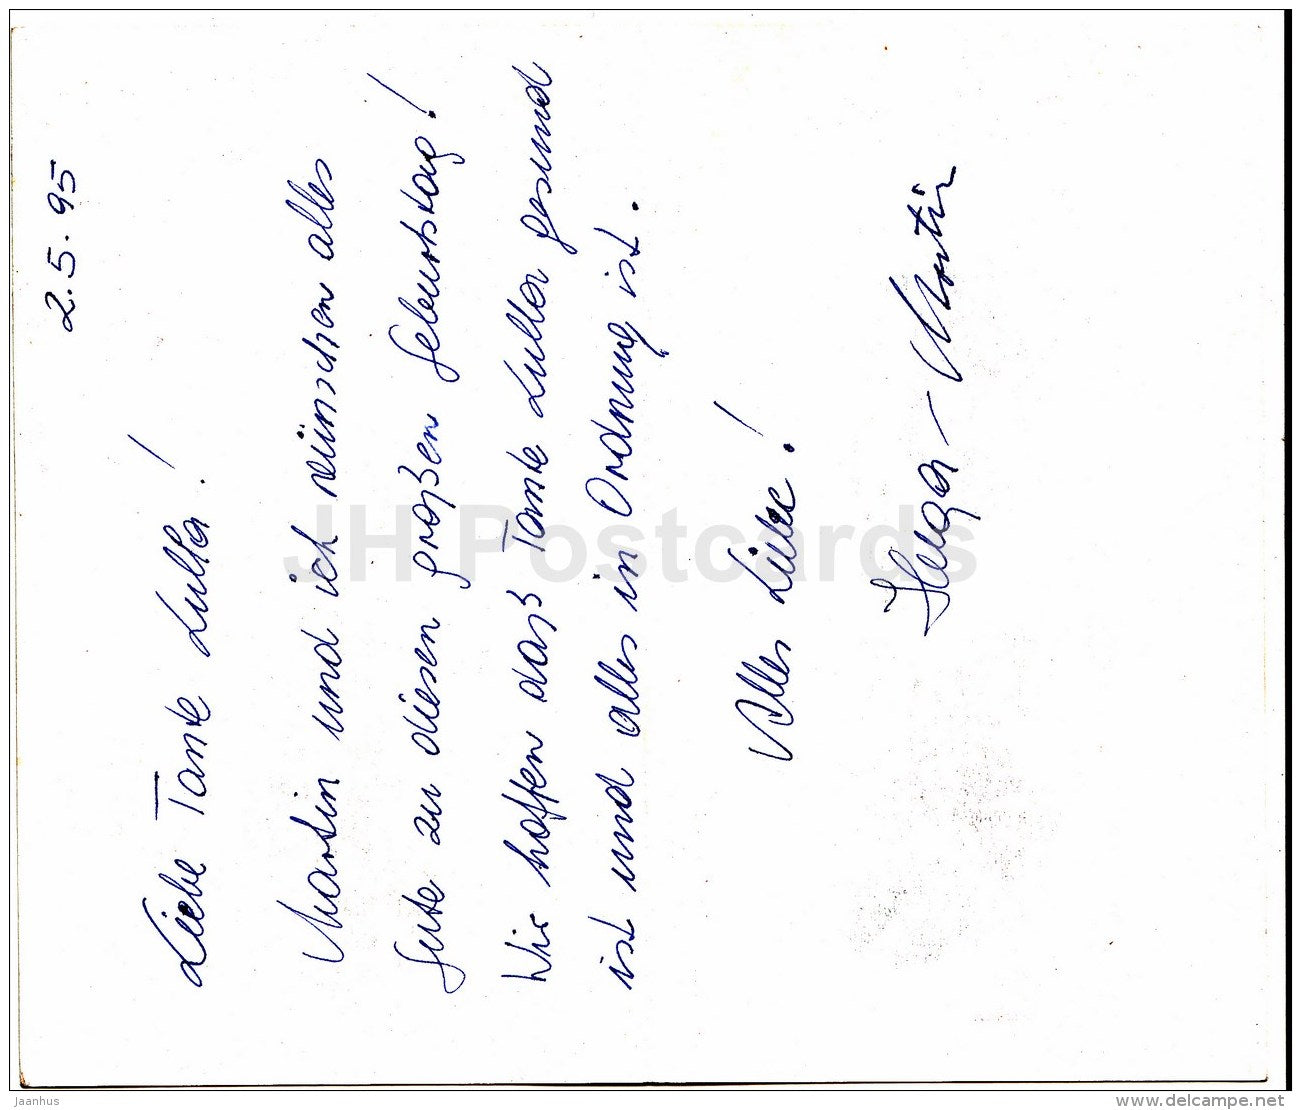 2.5.95
Liebe Tante Lulla!
Martin und ich wünschen alles
Gute zu diesen großen Geburtstag!
Wir hoffen daß Tante Lulla gesund
ist und alles in Ordnung ist.
Alles Liebe!
Helga - Martin
JH Postcards
Jaanhus
www.delcampe.net